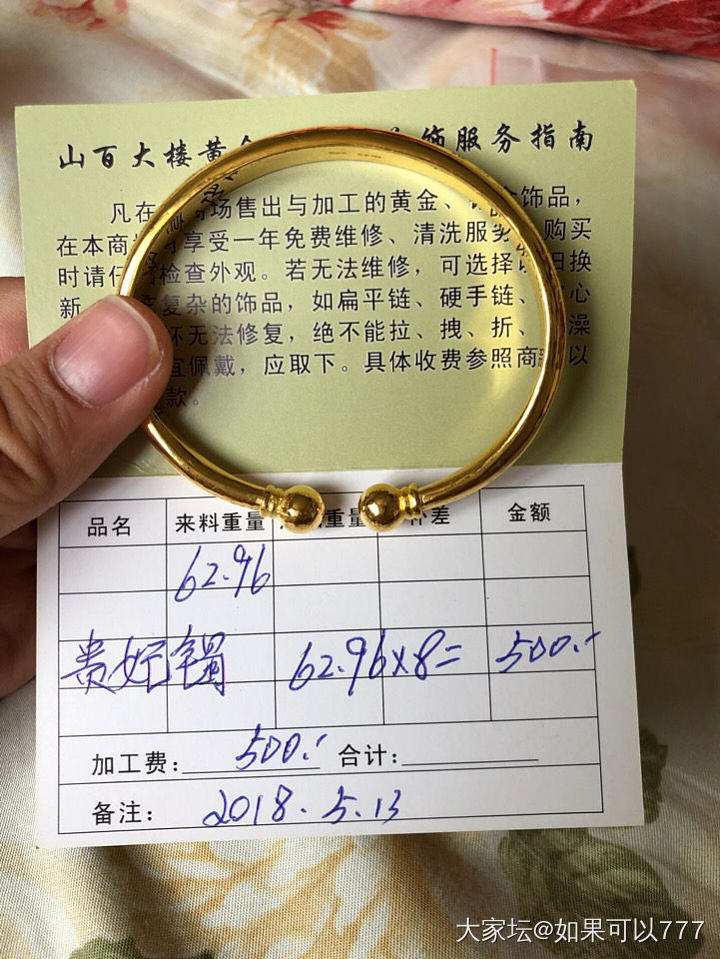 山百大楼黄 饰服务指南
凡在 场售出与加工的黄金、 饰品，
在本商 享受一年免费维修、清洗服务 购买
时请仔 检查外观。若无法维修，可选择 旧换
新 复杂的饰品，如扁平链、硬手链、 心
坏无法修复，绝不能拉、拽、折、 澡
宜佩戴，应取下。具体收费参照商 以
款。
品名 来料重量 重量 补差 金额
62.96
贵妃镯 62.96×8= 500.-
加工费： 500.- 合计：
备注： 2018.5.13
大家坛@如果可以777